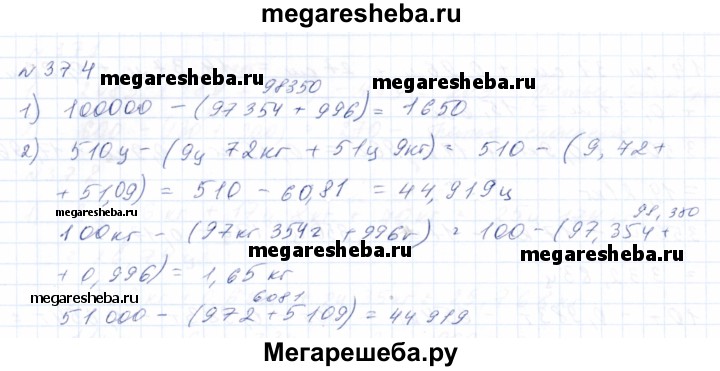 megaresheba.ru
№ 374
megaresheba.ru
98350
megaresheba.ru
1) 100000 - (97354 + 996) = 1650
2) 510ц - (9ц 72кг + 51ц 9кг) = 510 - (9,72 +
+ 51,09) = 510 - 60,81 = 44,919ц
megaresheba.ru
98,350
100кг - (97кг 354г + 996г) = 100 - (97,354 +
megaresheba.ru
+ 0,996) = 1,65 кг
megaresheba.ru
6081
51000 - (972 + 5109) = 44919
Мегарешеба.ру